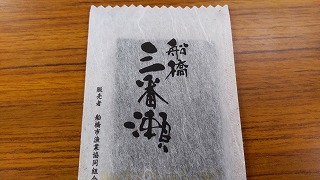 船橋
三番瀬
販売者 船橋市漁業協同組合